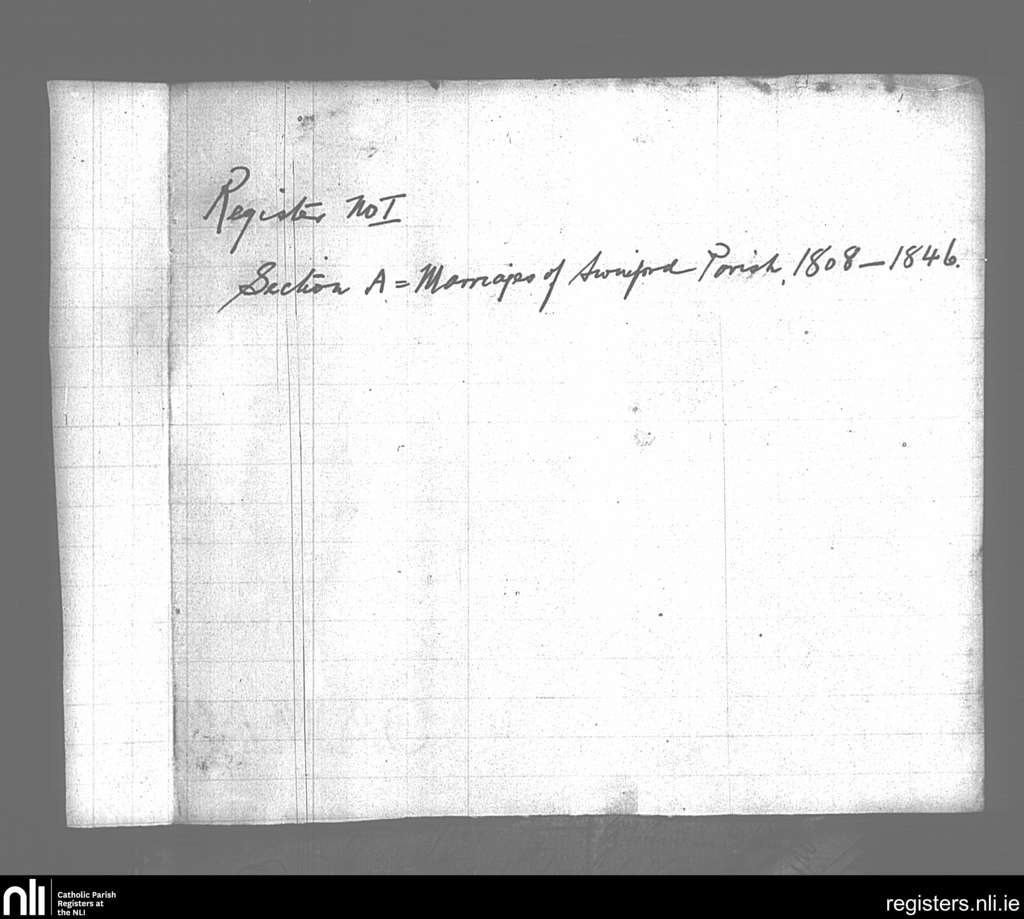 Register No I
Section A = Marriages of Swinford Parish, 1808 – 1846.
nli
Catholic Parish
Registers at
the NLI
registers.nli.ie